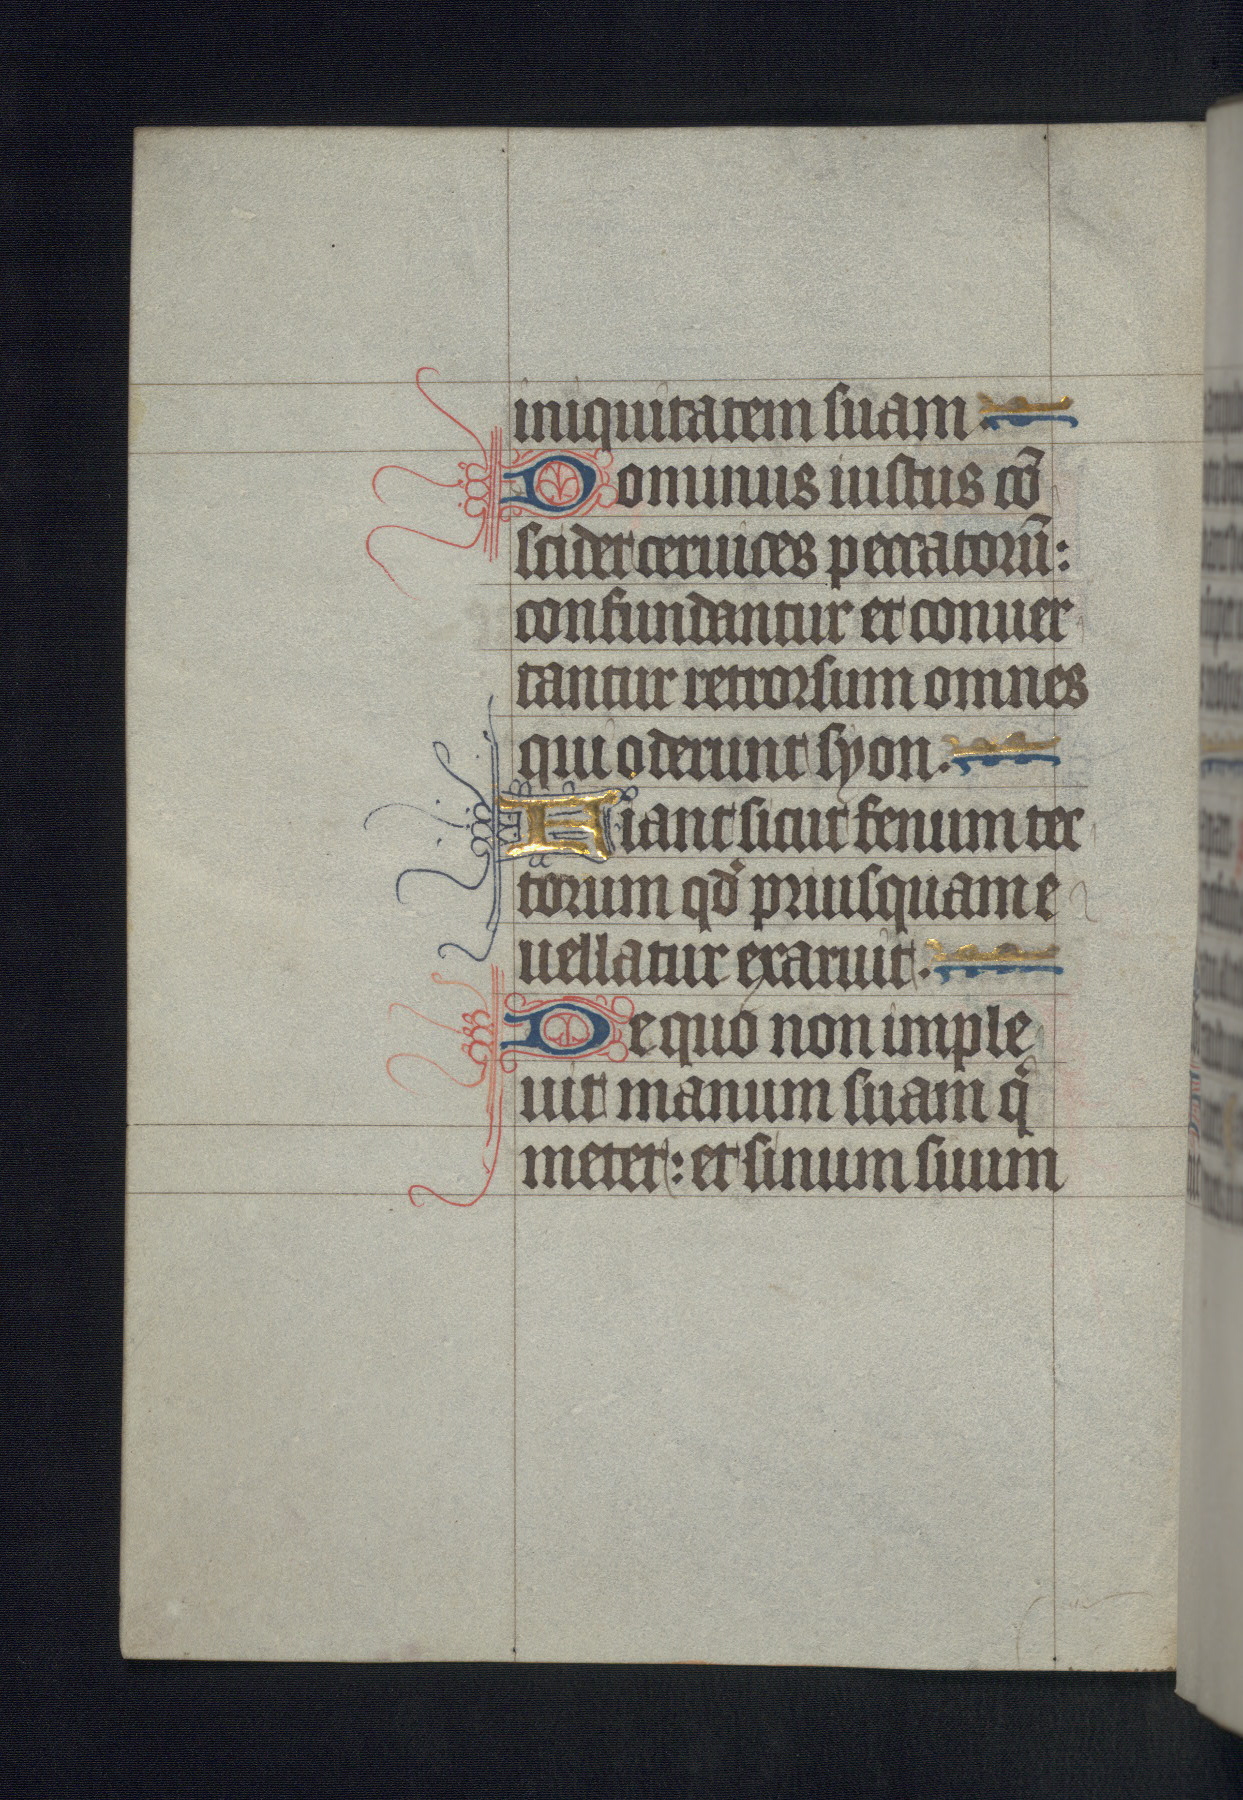 iniquitatem suam.
Dominus iustus cō
scidet ceruices peccatorū:
confundantur et conuer
tantur retrorsum omnes
qui oderunt syon.
Fiant sicut fenum tec
torum qd' priusquam e
uellatur exaruit.
De quo non imple
uit manum suam q̄
metet: et sinum suum